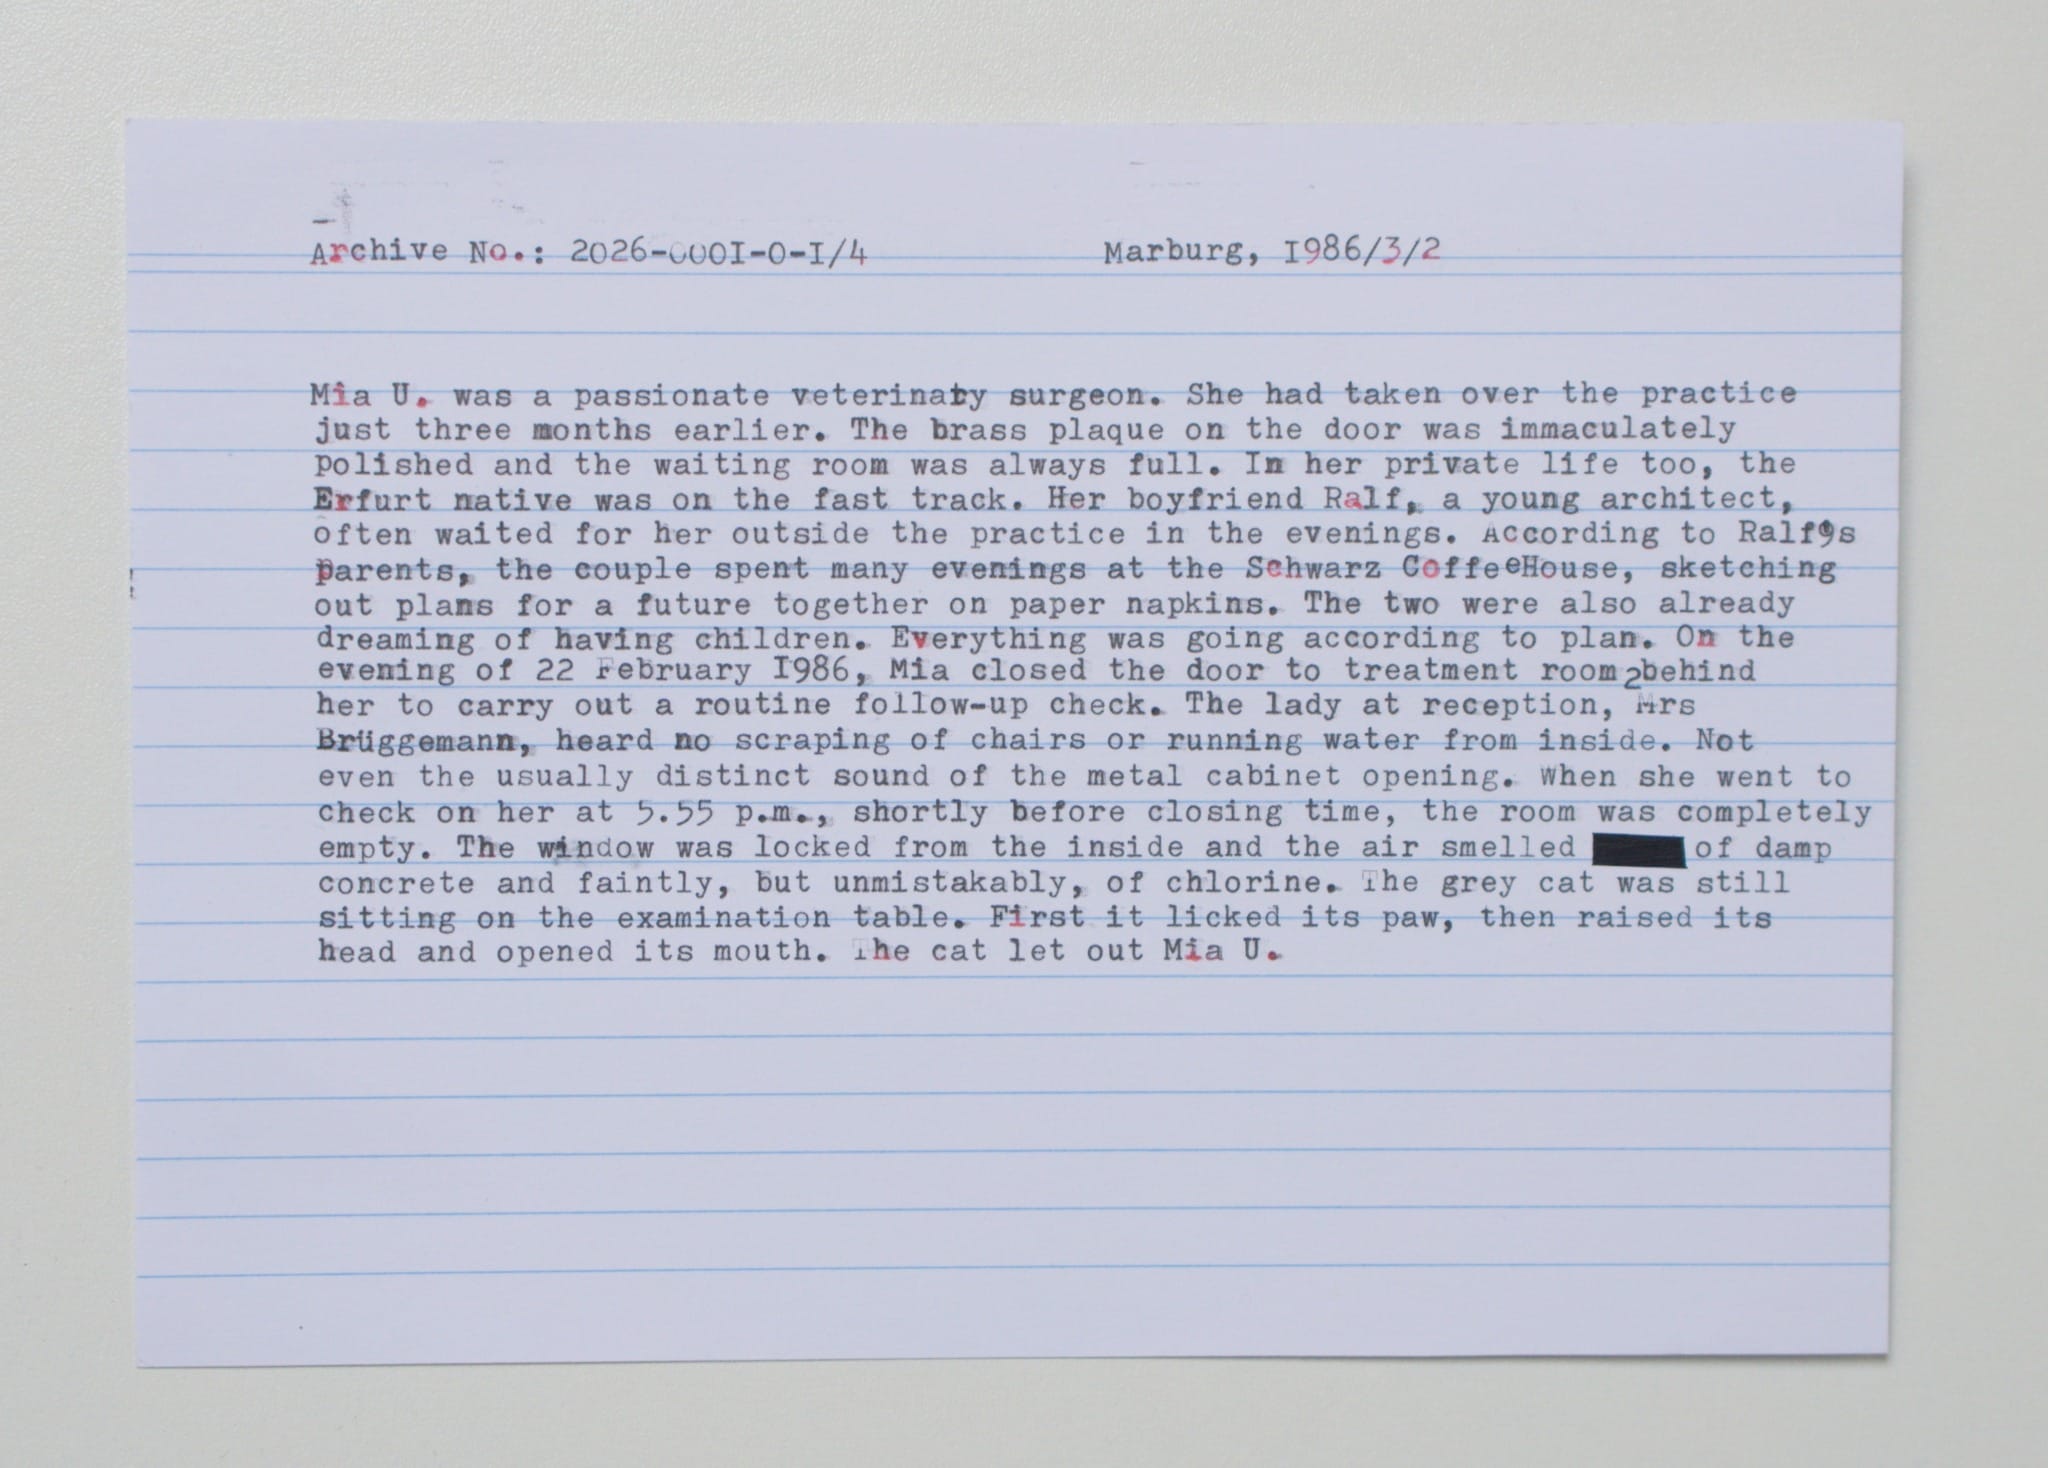 Archive No.: 2026-000I-0-I/4 Marburg, I986/3/2
Mia U. was a passionate veterinary surgeon. She had taken over the practice
just three months earlier. The brass plaque on the door was immaculately
polished and the waiting room was always full. In her private life too, the
Erfurt native was on the fast track. Her boyfriend Ralf, a young architect,
often waited for her outside the practice in the evenings. According to Ralf's
parents, the couple spent many evenings at the Schwarz CoffeeHouse, sketching
out plans for a future together on paper napkins. The two were also already
dreaming of having children. Everything was going according to plan. On the
evening of 22 February I986, Mia closed the door to treatment room 2 behind
her to carry out a routine follow-up check. The lady at reception, Mrs
Brüggemann, heard no scraping of chairs or running water from inside. Not
even the usually distinct sound of the metal cabinet opening. When she went to
check on her at 5.55 p.m., shortly before closing time, the room was completely
empty. The window was locked from the inside and the air smelled of damp
concrete and faintly, but unmistakably, of chlorine. The grey cat was still
sitting on the examination table. First it licked its paw, then raised its
head and opened its mouth. The cat let out Mia U.